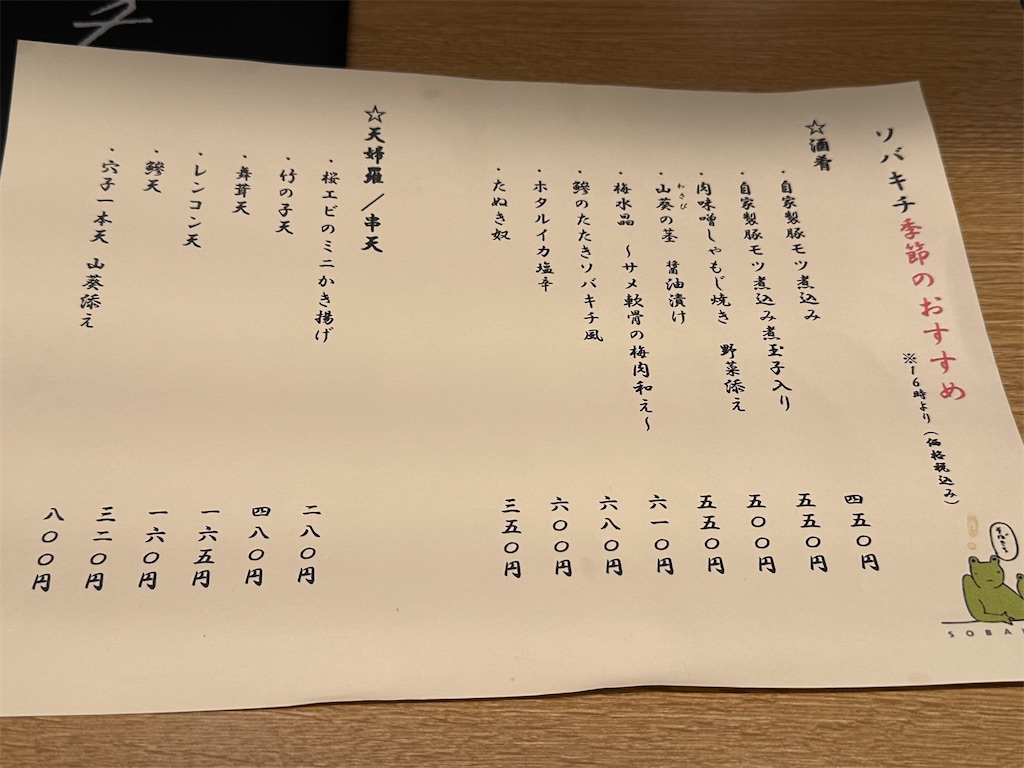 ソバキチ季節のおすすめ
※16時より（価格税込み）
☆酒肴
・自家製豚モツ煮込み 四五〇円
・自家製豚モツ煮込み煮玉子入り 五五〇円
・肉味噌しゃもじ焼き 野菜添え 五〇〇円
わさび
・山葵の茎 醤油漬け 五五〇円
・梅水晶 〜サメ軟骨の梅肉和え〜 六一〇円
・鯵のたたきソバキチ風 六八〇円
・ホタルイカ塩辛 六〇〇円
・たぬき奴 三五〇円
☆天婦羅／串天
・桜エビのミニかき揚げ 二八〇円
・竹の子天 四八〇円
・舞茸天 一六五円
・レンコン天 一六〇円
・鯵天 三二〇円
・穴子一本天 山葵添え 八〇〇円
SOBA